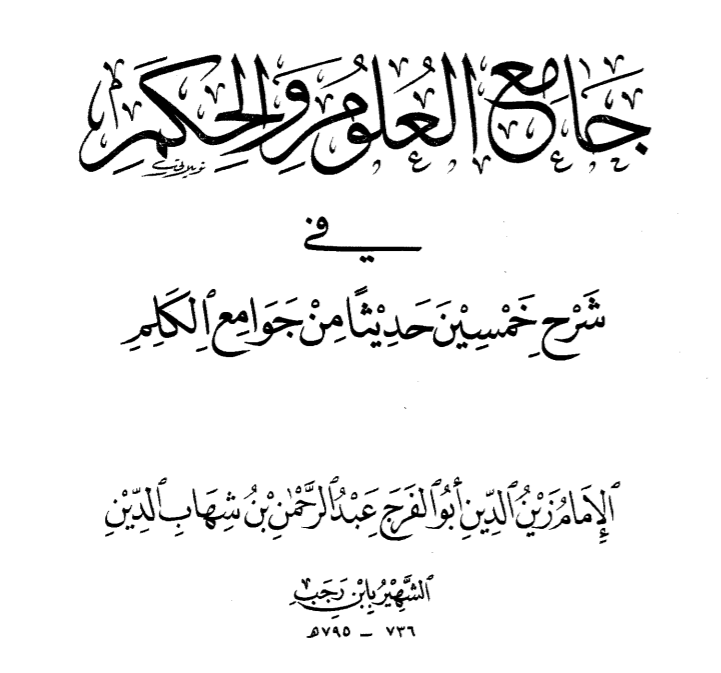 جَامِعُ العُلُومِ وَالحِكَمِ
فِي
شَرْحِ خَمْسِيْنَ حَدِيْثًا مِنْ جَوَامِعِ ٱلْكَلِمِ
ٱلإِمَامُ زَيْنُ ٱلدِّينِ أَبُو ٱلْفَرَجِ عَبْدُ ٱلرَّحْمٰنِ بْنُ شِهَابِ ٱلدِّيْنِ
ٱلشَّهِيْرُ بِابْنِ رَجَبٍ
٧٣٦ – ٧٩٥ھ